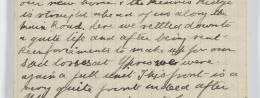 our new home & the Messines Ridge
is straight ahead of us along the
main Road, here we settled down to
a quite life and after being sent
Reinforcements to make up for our
sad losses at Ypres we were
again a full unit This front is a
very quite front indeed after